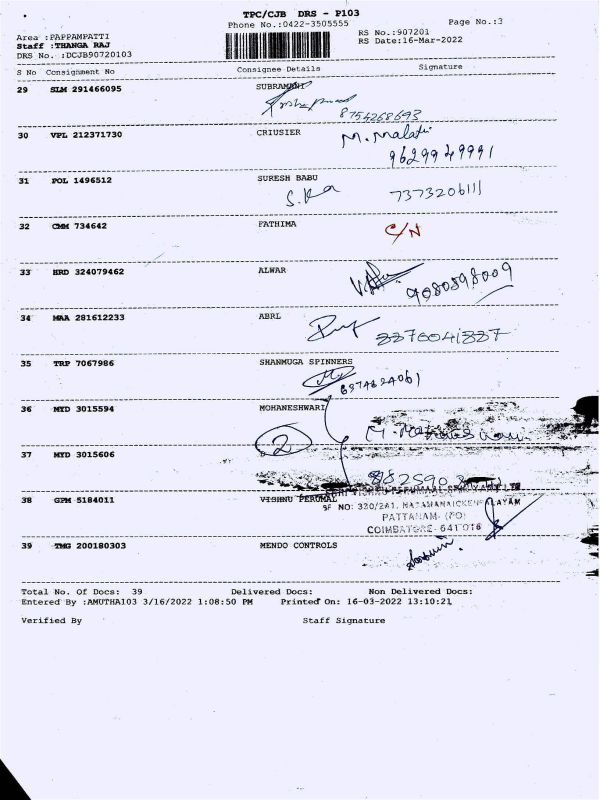 TPC/CJB DRS - P103
Phone No.:0422-3505555
Page No.:3
Area :PAPPAMPATTI
RS No.:907201
Staff :THANGA RAJ
RS Date:16-Mar-2022
DRS No. :DCJB90720103
S No Consignment No Consignee Details Signature
29 SLM 291466095 SUBRAMANI
8754268693
30 VPL 212371730 CRIUSIER M. Malati
9629949991
31 POL 1496512 SURESH BABU
7373206111
32 CMM 734642 FATHIMA C/N
33 HRD 324079462 ALWAR
9080598009
34 MAA 281612233 ABRL
35 TRP 7067986 SHANMUGA SPINNERS
36 MYD 3015594 MOHANESHWARI
2
37 MYD 3015606
38 GPM 5184011 VISHNU PERUMAL
SF NO: 320/2A1,
PATTANAM (PO)
COIMBATORE- 641 016
39 TMG 200180303 MENDO CONTROLS
Total No. Of Docs: 39 Delivered Docs: Non Delivered Docs:
Entered By :AMUTHA103 3/16/2022 1:08:50 PM Printed On: 16-03-2022 13:10:21
Verified By Staff Signature